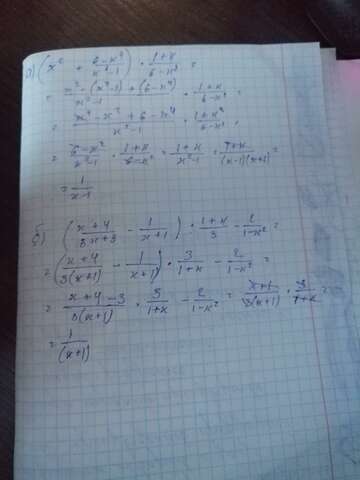 а) (x² + (6-x⁴)/(x²-1)) · (1+x)/(6-x²) =
= (x² · (x²-1) + (6-x⁴))/(x²-1) · (1+x)/(6-x²) =
= (x⁴ - x² + 6 - x⁴)/(x²-1) · (1+x)/(6-x²) =
= (6-x²)/(x²-1) · (1+x)/(6-x²) = (1+x)/(x²-1) = (1+x)/((x-1)(x+1)) =
= 1/(x-1)
б) ((x+4)/(3x+3) - 1/(x+1)) : (1+x)/3 - 2/(1-x²) =
= ((x+4)/(3(x+1)) - 1/(x+1)) · 3/(1+x) - 2/(1-x²) =
= (x+4-3)/(3(x+1)) · 3/(1+x) - 2/(1-x²) = (x+1)/(3(x+1)) · 3/(1+x) =
= 1/(x+1)